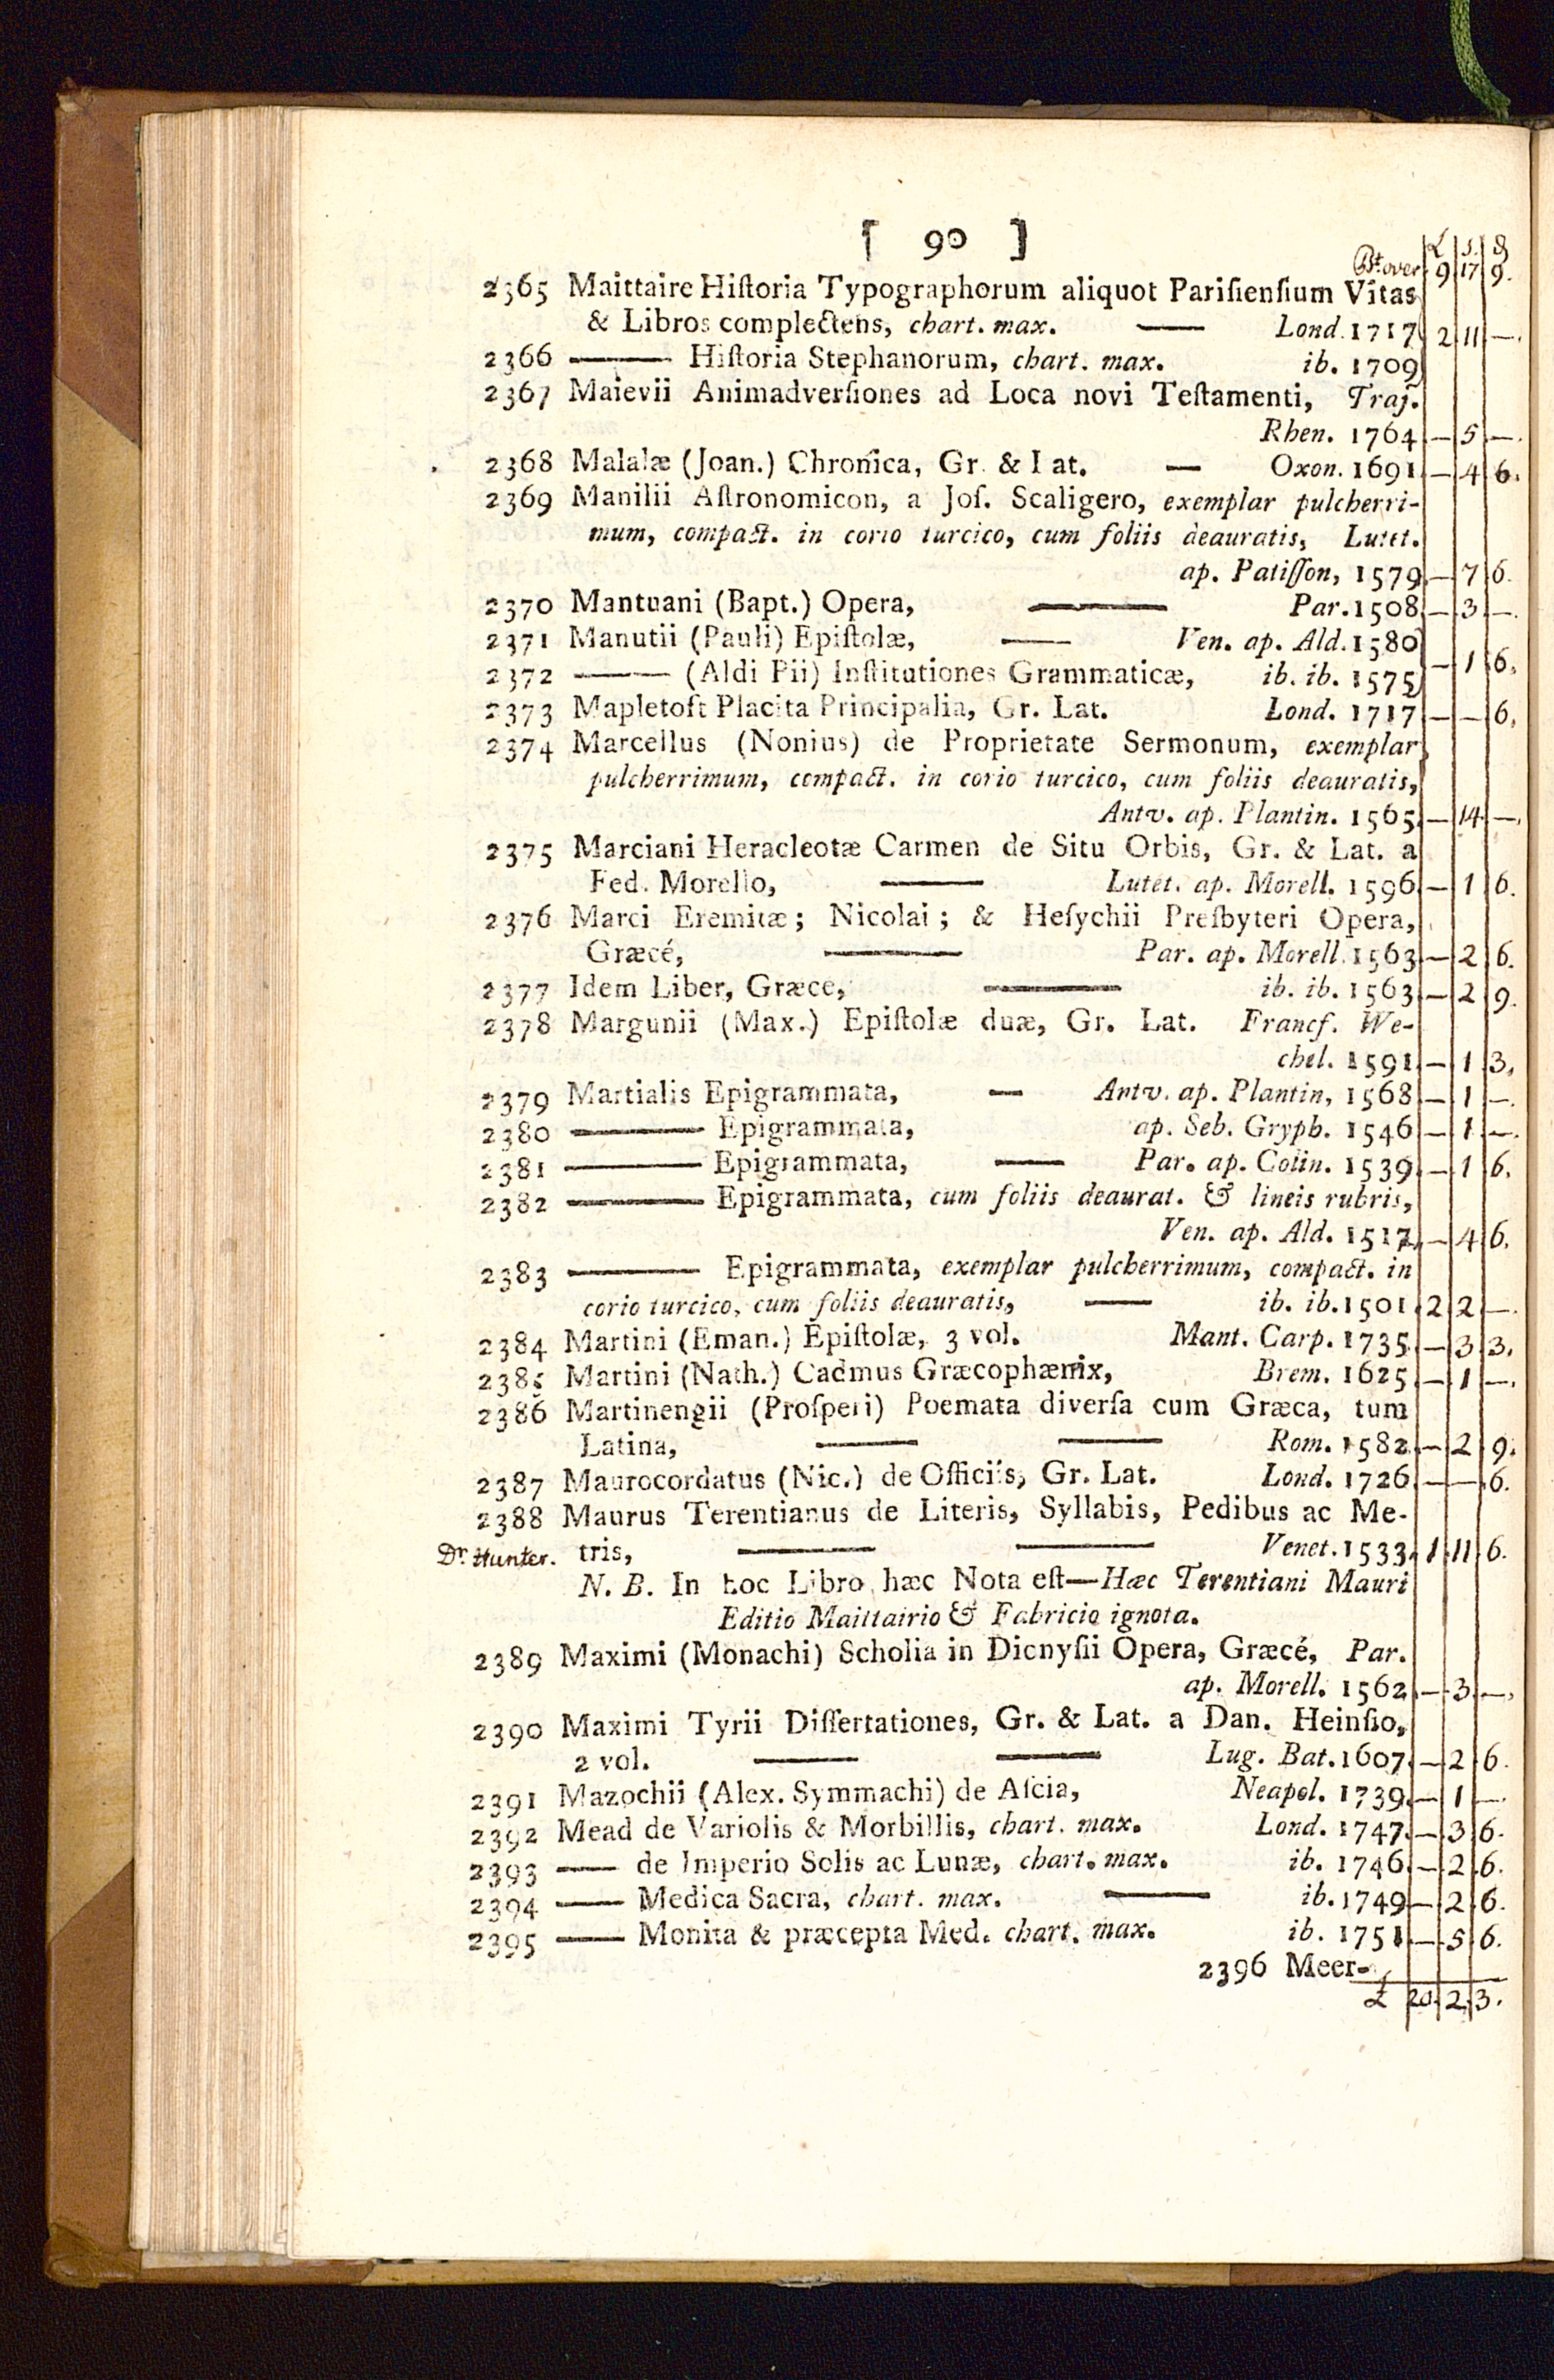 [ 90 ]
£ s. d
Bt. over 9 17 9.
2365 Maittaire Hiſtoria Typographorum aliquot Pariſienſium Vitas
& Libros complectens, chart. max. — Lond. 1717 2 11 —.
2366 —— Hiſtoria Stephanorum, chart. max. ib. 1709
2367 Maievii Animadverſiones ad Loca novi Teſtamenti, Traj.
Rhen. 1764 — 5 —.
2368 Malalæ (Joan.) Chronica, Gr. & Lat. — Oxon. 1691 — 4 6.
2369 Manilii Aſtronomicon, a Joſ. Scaligero, exemplar pulcherri-
mum, compact. in corio turcico, cum foliis deauratis, Lutet.
ap. Patiſſon, 1579 — 7 6.
2370 Mantuani (Bapt.) Opera, —— Par. 1508 — 3 —.
2371 Manutii (Pauli) Epiſtolæ, — Ven. ap. Ald. 1580
2372 —— (Aldi Pii) Inſtitutiones Grammaticæ, ib. ib. 1575 — 1 6.
2373 Mapletoft Placita Principalia, Gr. Lat. Lond. 1717 — — 6.
2374 Marcellus (Nonius) de Proprietate Sermonum, exemplar
pulcherrimum, compact. in corio turcico, cum foliis deauratis,
Antv. ap. Plantin. 1565 — 14 —.
2375 Marciani Heracleotæ Carmen de Situ Orbis, Gr. & Lat. a
Fed. Morello, —— Lutet. ap. Morell. 1596 — 1 6.
2376 Marci Eremitæ; Nicolai; & Heſychii Preſbyteri Opera,
Græcé, —— Par. ap. Morell. 1563 — 2 6.
2377 Idem Liber, Græce, —— ib. ib. 1563 — 2 9.
2378 Margunii (Max.) Epiſtolæ duæ, Gr. Lat. Francf. We-
chel. 1591 — 1 3.
2379 Martialis Epigrammata, — Antv. ap. Plantin, 1568 — 1 —.
2380 —— Epigrammata, ap. Seb. Gryph. 1546 — 1 —.
2381 —— Epigrammata, — Par. ap. Colin. 1539 — 1 6.
2382 —— Epigrammata, cum foliis deaurat. & lineis rubris,
Ven. ap. Ald. 1517 — 4 6.
2383 —— Epigrammata, exemplar pulcherrimum, compact. in
corio turcico, cum foliis deauratis, — ib. ib. 1501 2 2 —.
2384 Martini (Eman.) Epiſtolæ, 3 vol. Mant. Carp. 1735 — 3 3.
2385 Martini (Nath.) Cadmus Græcophænix, Brem. 1625 — 1 —.
2386 Martinengii (Proſperi) Poemata diverſa cum Græca, tum
Latina, —— —— Rom. 1582 — 2 9.
2387 Maurocordatus (Nic.) de Officiis, Gr. Lat. Lond. 1726 — — 6.
2388 Maurus Terentianus de Literis, Syllabis, Pedibus ac Me-
Dr. Hunter. tris, —— —— Venet. 1533 1 11 6.
N. B. In hoc Libro hæc Nota eſt—Hæc Terentiani Mauri
Editio Maittairio & Fabricio ignota.
2389 Maximi (Monachi) Scholia in Dionyſii Opera, Græcé, Par.
ap. Morell. 1562 — 3 —.
2390 Maximi Tyrii Diſſertationes, Gr. & Lat. a Dan. Heinſio,
2 vol. —— —— Lug. Bat. 1607 — 2 6.
2391 Mazochii (Alex. Symmachi) de Aſcia, Neapol. 1739 — 1 —.
2392 Mead de Variolis & Morbillis, chart. max. Lond. 1747 — 3 6.
2393 — de Imperio Solis ac Lunæ, chart. max. ib. 1746 — 2 6.
2394 — Medica Sacra, chart. max. —— ib. 1749 — 2 6.
2395 — Monita & præcepta Med. chart. max. ib. 1751 — 5 6.
2396 Meer-
£ 20 2 3.